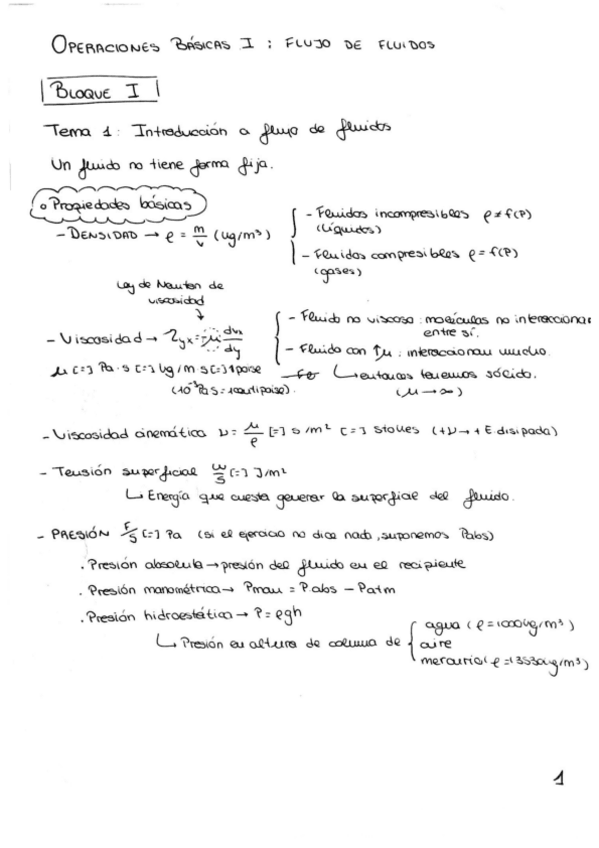 OPERACIONES BÁSICAS I : FLUJO DE FLUIDOS
BLOQUE I
Tema 1: Introducción a flujo de fluidos
Un fluido no tiene forma fija.
o Propiedades básicas
- DENSIDAD → ρ = m/v (kg/m³)
- Fluidos incompresibles ρ ≠ f(P)
(líquidos)
- Fluidos compresibles ρ = f(P)
(gases)
Ley de Newton de
viscosidad
- Viscosidad → τyx = -μ dvx/dy
- Fluido no viscoso: moléculas no interaccionan
entre sí.
- Fluido con ↑μ : interaccionan mucho.
↳ entonces tenemos sólido.
(μ → ∞)
μ [=] Pa·s [=] kg/m·s [=] 1 poise
(10⁻³ Pa·s = 1 centipoise).
- Viscosidad cinemática ν = μ/ρ [=] s/m² [=] stokes (+ν → + E disipada)
- Tensión superficial w/s [=] J/m²
↳ Energía que cuesta generar la superficie del fluido.
- PRESIÓN F/S [=] Pa (si el ejercicio no dice nada, suponemos Pabs)
. Presión absoluta → presión del fluido en el recipiente
. Presión manométrica → Pman = Pabs - Patm
. Presión hidroestática → P = ρgh
↳ Presión en altura de columna de
agua (ρ = 1000 kg/m³)
aire
mercurio (ρ = 13530 kg/m³)
1